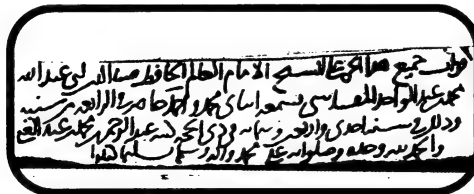 قرات جميع هدا الجزء على الشيخ الامام العالم الحافظ ضيا الدين ابي عبد الله
محمد بن عبد الواحد المقدسي فسمعه ابناي محمد واحمد حاضر في الرابعه من سنيه
وذلك في سنه احدى واربعين وستمايه وكتب عبد الرحمن بن محمد بن عبد
والحمد لله وحده وصلواته على محمد واله وسلم تسليما كثيرا